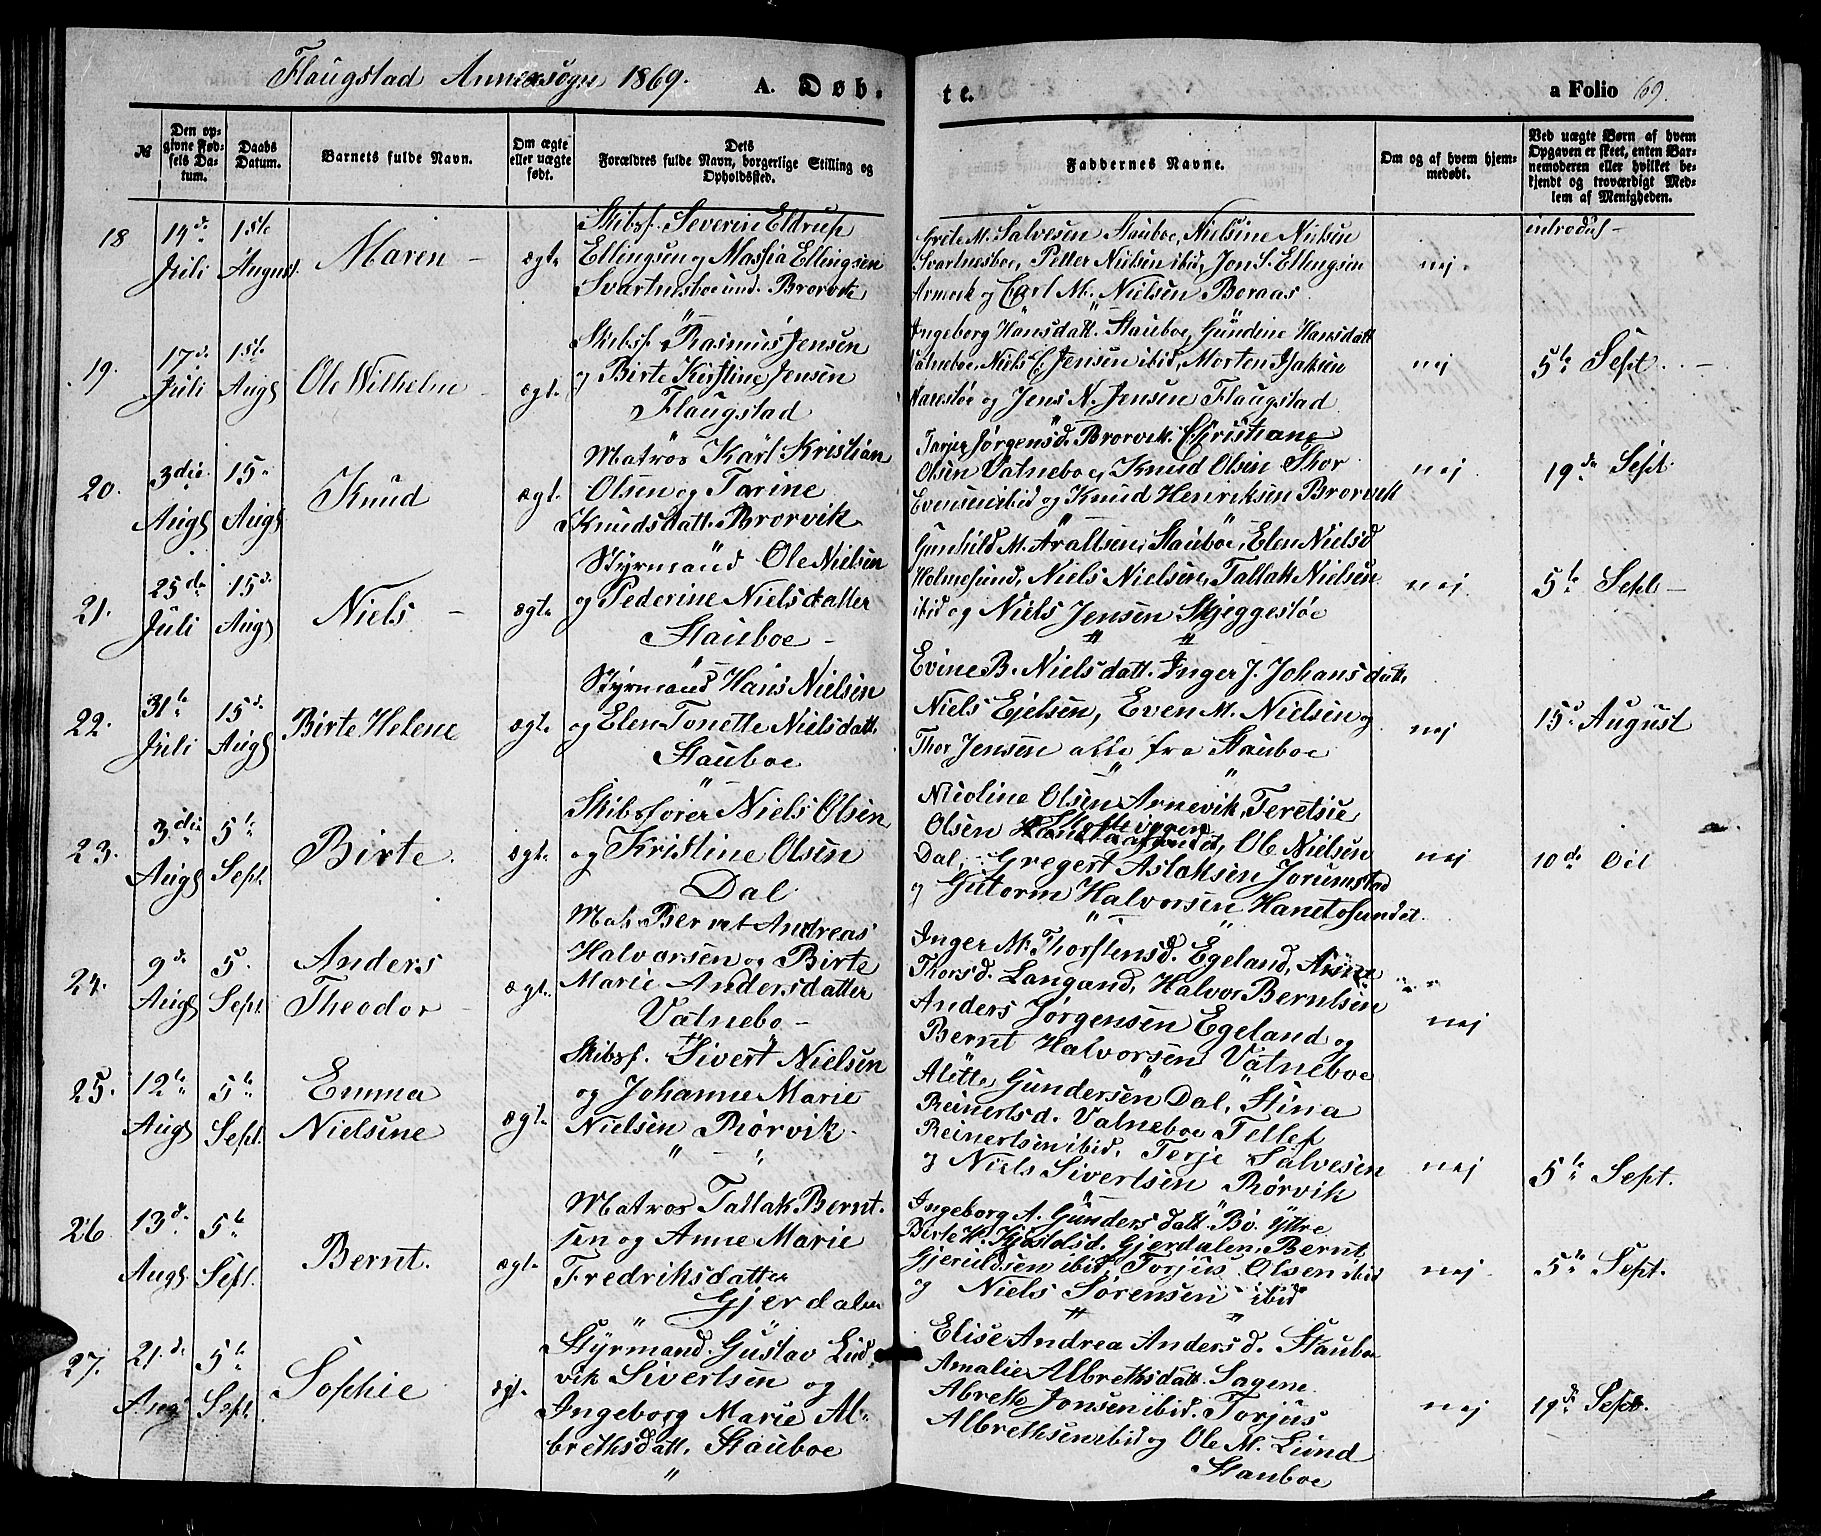 Flaugstad Annexsogn 1869.
A. Døb.
te.
a Folio 69.
№
Den op-
givne Fød-
sels Da-
tum.
Daabs
Datum.
Barnets fulde Navn.
Om ægte
eller uægte
født.
Dets
Forældres fulde Navn, borgerlige Stilling og
Opholdssted.
Faddernes Navne.
Om og af hvem hjem-
medøbt.
Ved uægte Børn af hvem
Opgaven er skeet, enten Bar-
nemoderen eller hvilket be-
kjendt og troværdigt Med-
lem af Menigheden.
introdus
18
14d.
Juli
1ste
August.
Maren
ægt.
Skibsf. Severin Eldrup
Ellingsen og Massia Ellingsen
Svartnesboe und. Brorvik
Grete M. Salvesen Stauboe, Nielsine Nielsen
Svartnesboe, Petter Nielsen ibid, Jon S. Ellingsen
Arnevik og Carl M. Nielsen Boraas
nej.
19.
17d.
Juli
1ste
Augs
Ole Wilhelm
ægt.
Skibsf. Rasmus Jensen
og Birte Kirstine Jensen
Flaugstad
Ingeborg Hansdatt. Stauboe, Gundine Hansdatt
Vatneboe, Niels C. Jensen ibid, Morten Isaksen
Narestøe og Jens N. Jensen Flaugstad
nej
5te Sept.
20.
3die
Augs
15
Augs
Knud
ægt.
Matros Karl Kristian
Olsen og Tarine
Knudsdatt. Brorvik
Tarjer Jørgensd. Brorvik. Christiane
Olsen Vatneboe, Knud Olsen Thor
Evensen ibid og Knud Henriksen Brorvik
nej
19de Sept.
21.
25de
Juli
15d.
Augs
Niels
ægt.
Styrmand Ole Nielsen
og Pederine Nielsdatter
Stauboe
Gunhild M. Araltsen, Stauboe, Elen Nielsd
Holmesund, Niels Nielsen, Tallak Nielsen
ibid og Niels Jensen Skjeggestøe
nej
5te Sept
22.
31te
Juli
15d.
Augs
Birte Helene
ægt.
Styrmand Hans Nielsen
og Elen Tonette Nielsdatt.
Stauboe
Evine B. Nielsdatt. Inger J. Johansdatt.
Niels Ejelsen, Even M. Nielsen og
Thor Jensen alle fra Stauboe
nej
15d August
23.
3die
Augs
5te
Sept.
Birte.
ægt.
Skibsfører Niels Olsen
og Kristine Olsen
Dal
Nicoline Olsen Arnevik, Teretsie
Olsen , Ole Nielsen
Dal, Gregert Aslaksen Jorumstad
og Gutorm Halvorsen Hanetosundet.
nej
10de Oct
24.
9d
Augs
5.
Sept.
Anders
Theodor
ægt.
Mat. Bernt Andreas
Halvorsen og Birte
Marie Andersdatter
Vatnebo
Inger M. Thorstensd. Egeland, Anne
Thorsd. Langand, Halvor Berntsen
Anders Jørgensen Egeland og
Bernt Halvorsen Vatneboe
nej
25.
12te
Augs
5te
Sept.
Emma
Nielsine
ægt.
Skibsf. Sivert Nielsen
og Johanne Marie
Nielsen Rørvik
Alette Gundersen Dal, Stina
Reinertsd. Vatneboe Tellef
Reinertsen ibid. Terje Salvesen
og Niels Sivertsen Rørvik
nej
5te Sept.
26
13d.
Augs
5te
Sept.
Bernt.
ægt.
Matros Tallak Bernt-
sen og Anne Marie
Fredriksdatter
Gjerdalen
Ingeborg A. Gundersdatt. Bø. Yttre
Birte H. Kjøstolsd. Gjerdalen, Bernt
Gjeruldsen ibid, Torjus Olsen ibid
og Niels Sørensen ibid
nej.
5te Sept.
27.
21.de
Augs
5te
Sept.
Sophie
ægt.
Styrmand. Gustav Lud-
vik Sivertsen og
Ingeborg Marie Al-
brethsdatt. Stauboe
Elise Andrea Andersd. Stauboe
Amalie Albrethsdatt. Sagene
Abreth Jonsen ibid. Torjus
Albrethsen ibid og Ole M. Lund
Stauboe
nej
19de Sept.